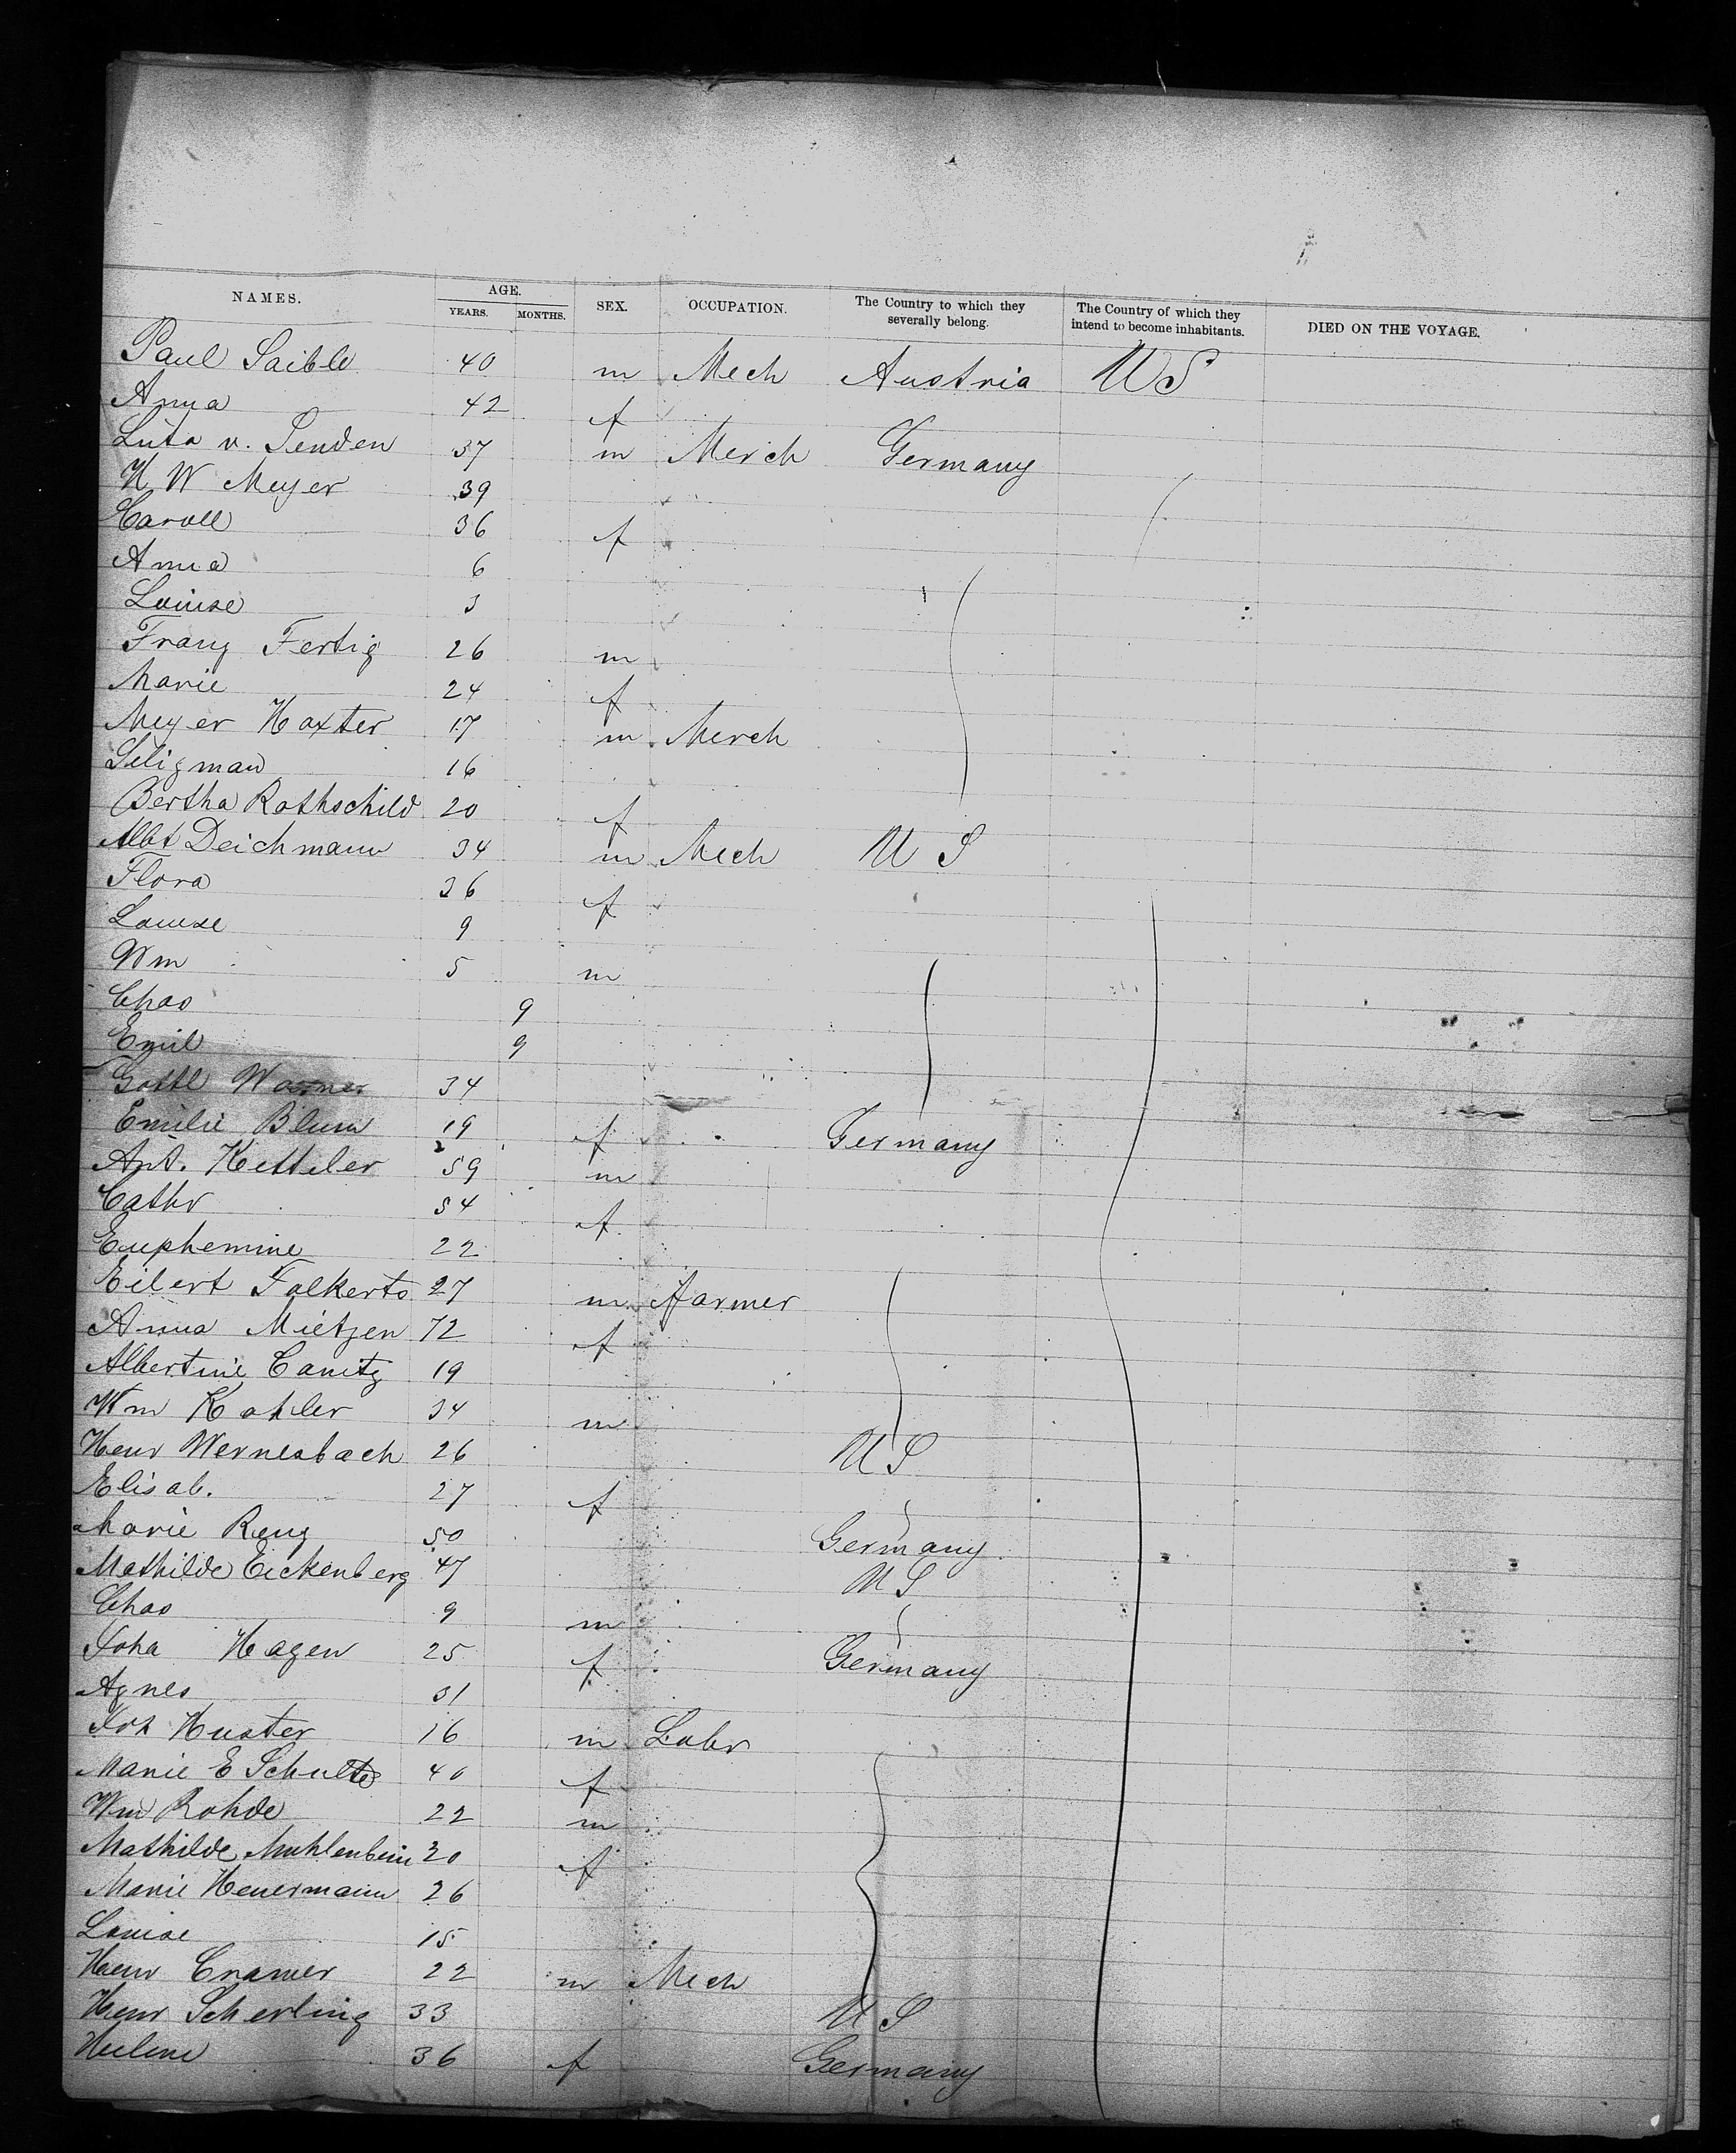 NAMES. AGE. YEARS. MONTHS. SEX. OCCUPATION. The Country to which they severally belong. The Country of which they intend to become inhabitants. DIED ON THE VOYAGE.
Paul Saible 40 m Mech Austria US
Anna 42 f
Luta v. Senden 37 m Merch Germany
H W Meyer 39
Caroll 36 f
Anna 6
Louise 3
Franz Fertig 26 m
Marie 24 f
Meyer Hoxter 17 m Merch
Seligman 16
Bertha Rothschild 20 f
Albt Deichmann 34 m Mech U S
Flora 36 f
Louise 9
Wm 5 m
Chas 9
Emil 9
Gottl Warner 34
Emilie Blum 19 f Germany
Ant. Ketteler 59 m
Cathr 54 f
Euphemine 22
Eilert Folkerts 27 m Farmer
Anna Mietzen 72 f
Albertine Canitz 19
Wm Kohler 34 m
Henr Wernesbach 26 U S
Elisab. 27 f
Marie Renz 50 Germany
Mathilde Eickenberg 47 U S
Chas 9 m
Joha Hagen 25 f Germany
Agnes 31
Joh Huster 16 m Labr
Marie E Schulte 40 f
Wm Rohde 22 m
Mathilde Muhlenbein 20 f
Marie Heuermann 26
Louise 15
Henr Cramer 22 m Mech
Henr Scherling 33 U S
Helene 36 f Germany